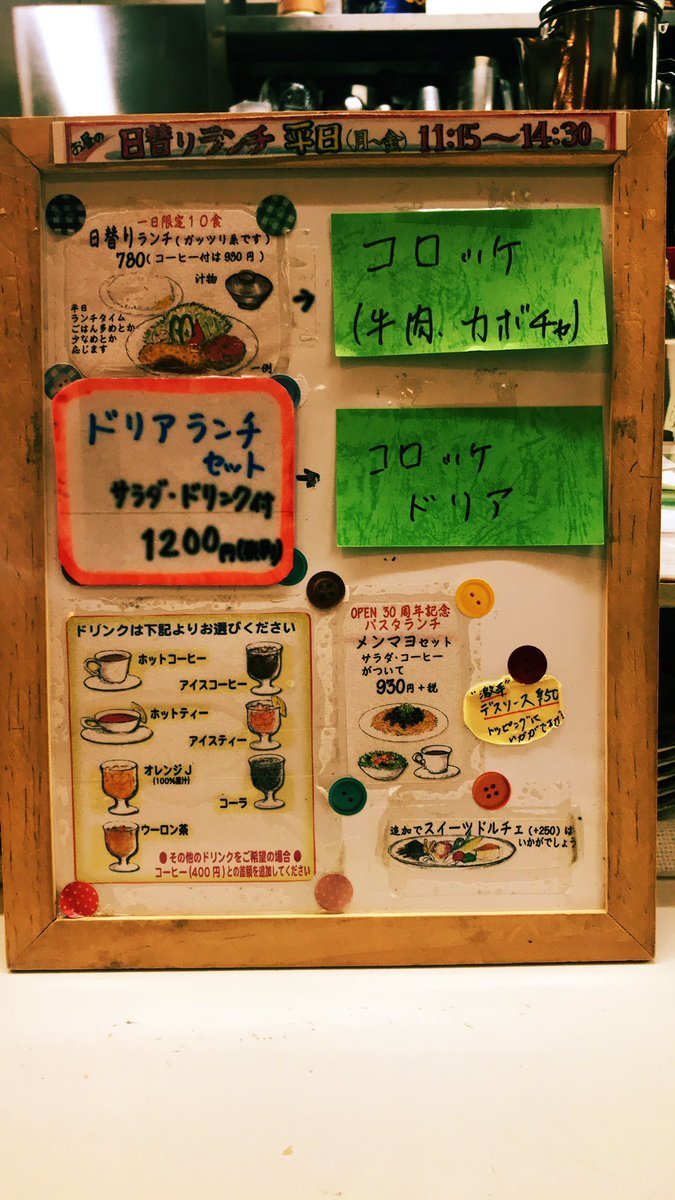 お昼の 日替りランチ 平日(月〜金) 11:15〜14:30
一日限定10食
日替りランチ(ガッツリ系です)
780(コーヒー付は930円)
汁物
平日
ランチタイム
ごはん多めとか
少なめとか
応じます
一例
コロッケ
(牛肉、カボチャ)
ドリアランチ
セット
サラダ・ドリンク付
1200円
コロッケ
ドリア
ドリンクは下記よりお選びください
ホットコーヒー
アイスコーヒー
ホットティー
アイスティー
オレンジJ
(100%果汁)
コーラ
ウーロン茶
●その他のドリンクをご希望の場合●
コーヒー(400円)との差額を追加してください
OPEN 30周年記念
パスタランチ
メンマヨセット
サラダ・コーヒー
がついて
930円+税
"激辛"
デスソース ¥50
トッピングに
いかがですか?
追加でスイーツドルチェ(+250)は
いかがでしょう